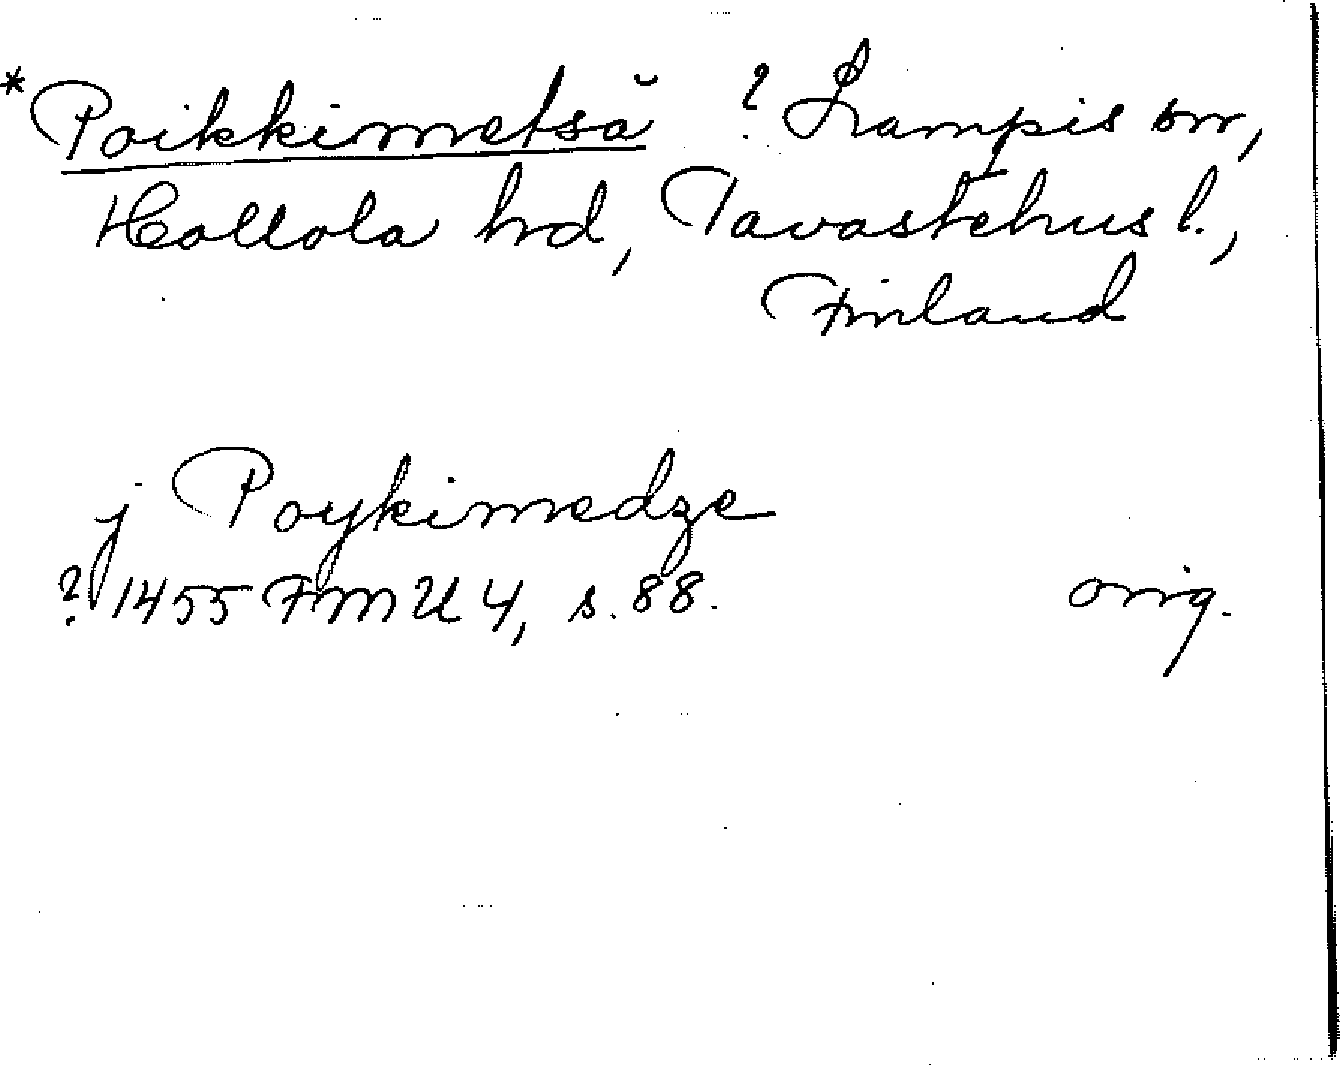 *Poikkimetsä ? Lampis sn,
Hollola hd, Tavastehus l.,
Finland
j Poykimedze
? 1455 FMU 4, s. 88. orig.